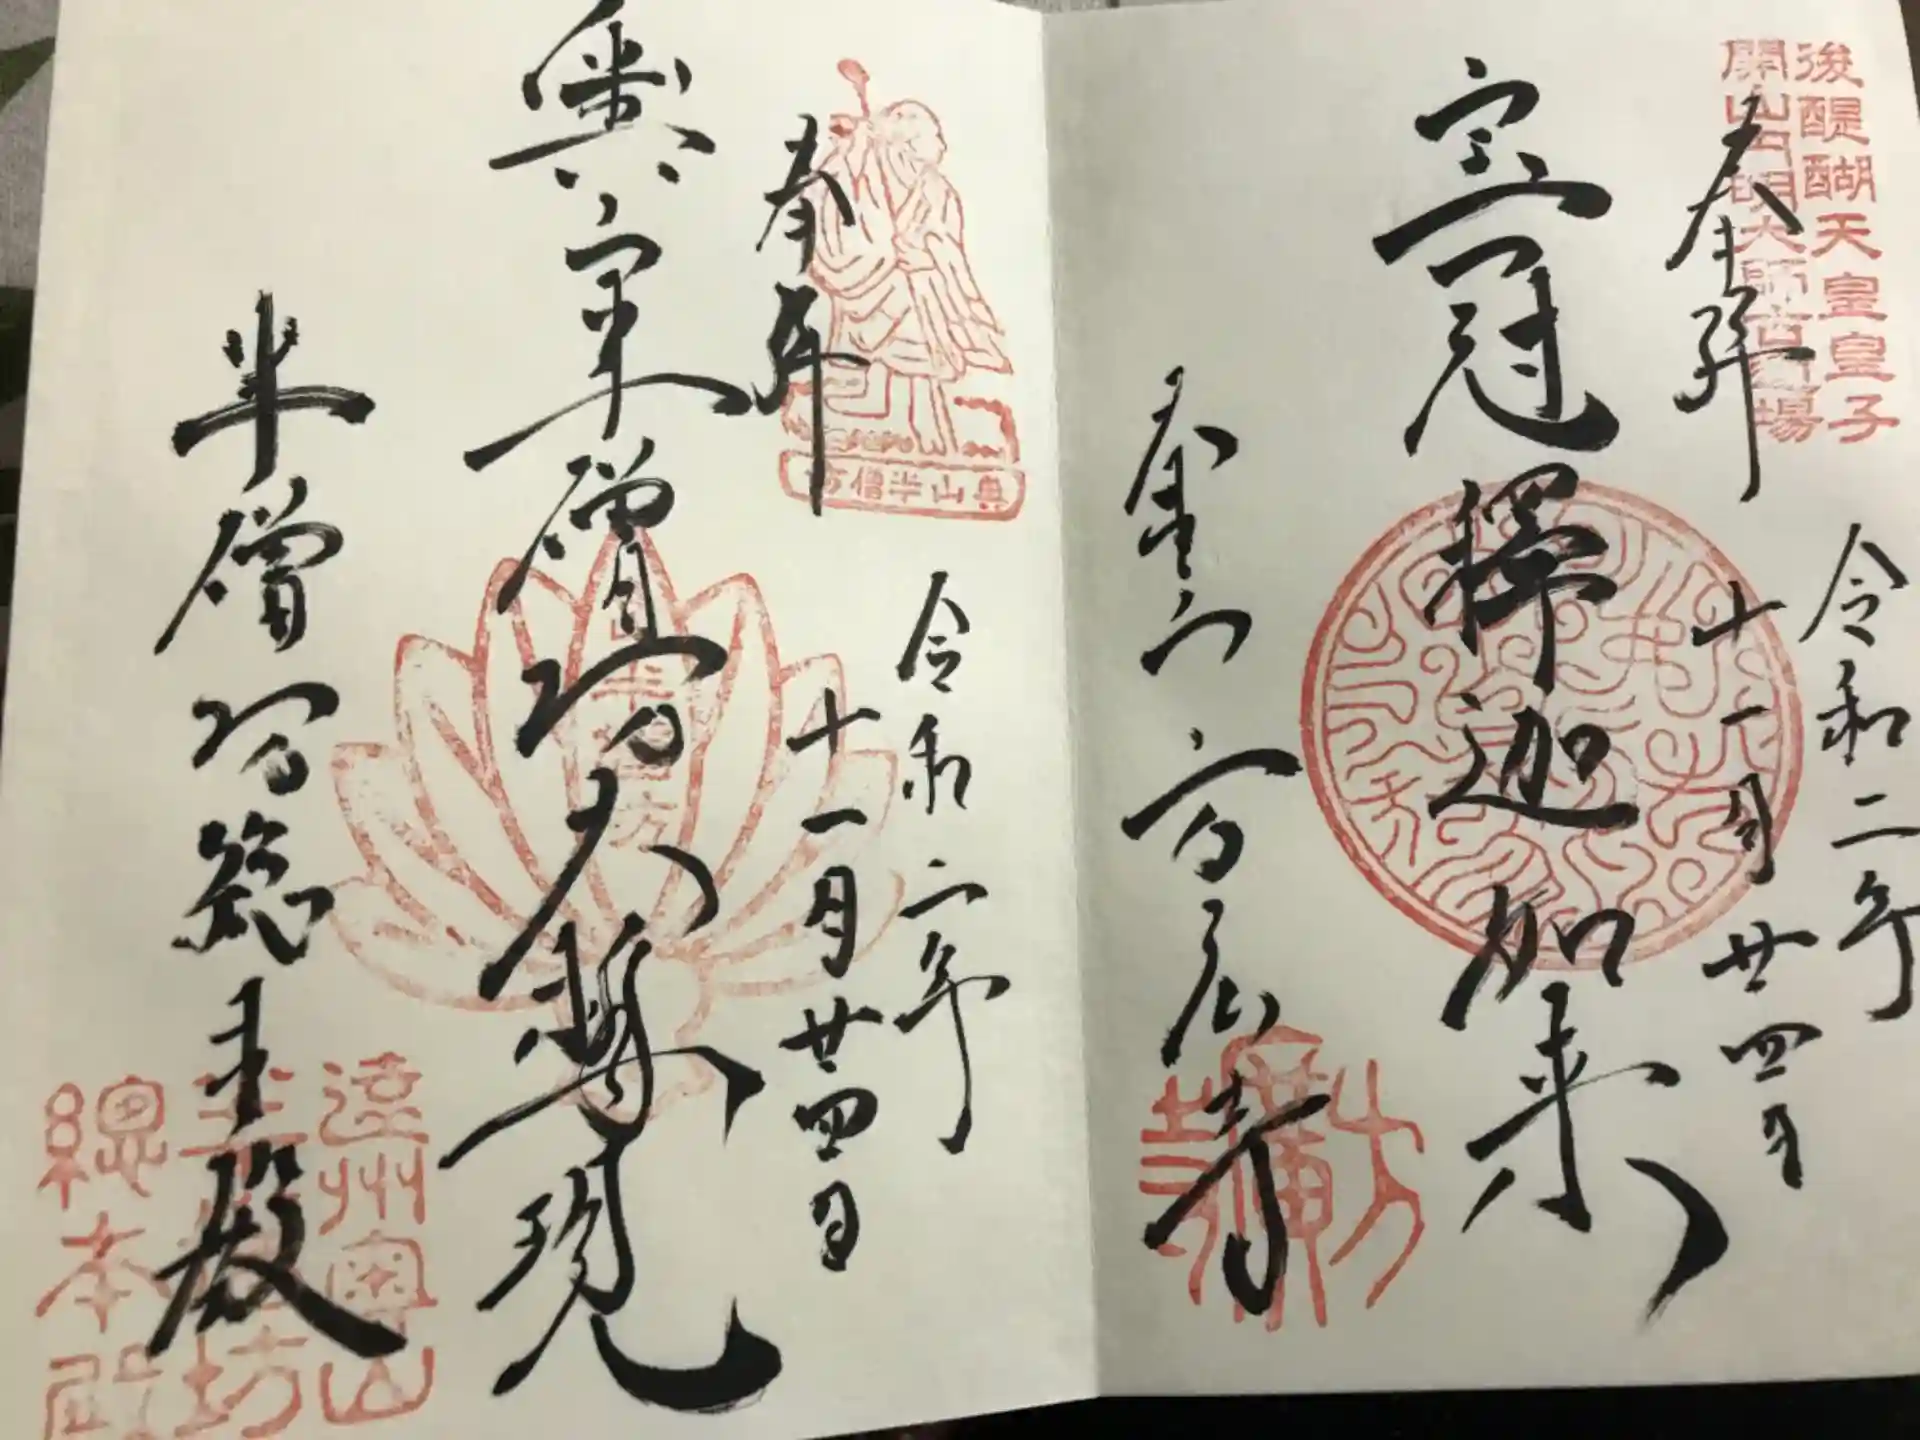 後醍醐天皇皇子
開山円明大師古道場
奉拝
令和二年
十一月廿四日
宝冠釋迦如来
奥山方広寺
奉拝
奥山半僧坊
令和二年
十一月廿四日
奥山半僧坊大権現
半僧坊
半僧坊総本殿
遠州奥山
半僧坊
總本殿